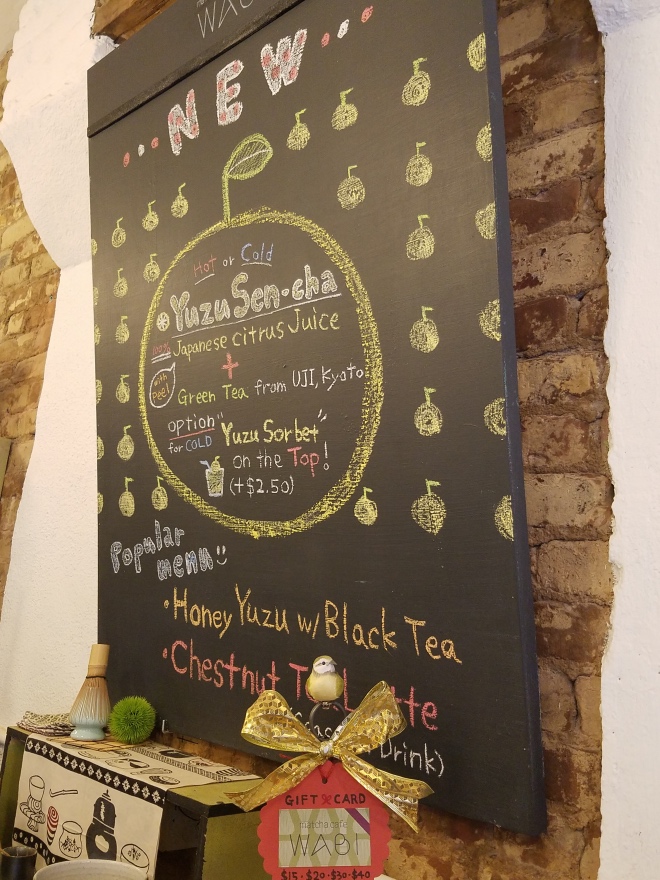 WABI
...NEW...
Hot or Cold
Yuzu Sen-cha
100% Japanese citrus Juice
with peel!
+
Green Tea from UJI, Kyoto
option
for COLD
"Yuzu Sorbet"
on the Top!
(+$2.50)
Popular
menu
• Honey Yuzu w/ Black Tea
• Chestnut Tea Latte
Drink)
GIFT CARD
matcha cafe
WABI
$15 • $20 • $30 • $40